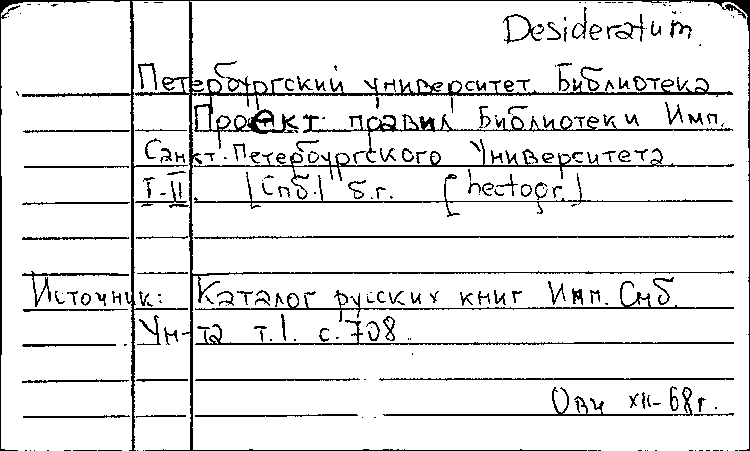 Desideratum
Петербургский университет. Библиотека
Проект правил Библиотеки Имп.
Санкт-Петербургского Университета.
I-II. [Спб.] б.г. [hectogr.]
Источник: Каталог русских книг Имп. Спб.
Ун-та т.1. с.708.
XII-68г.